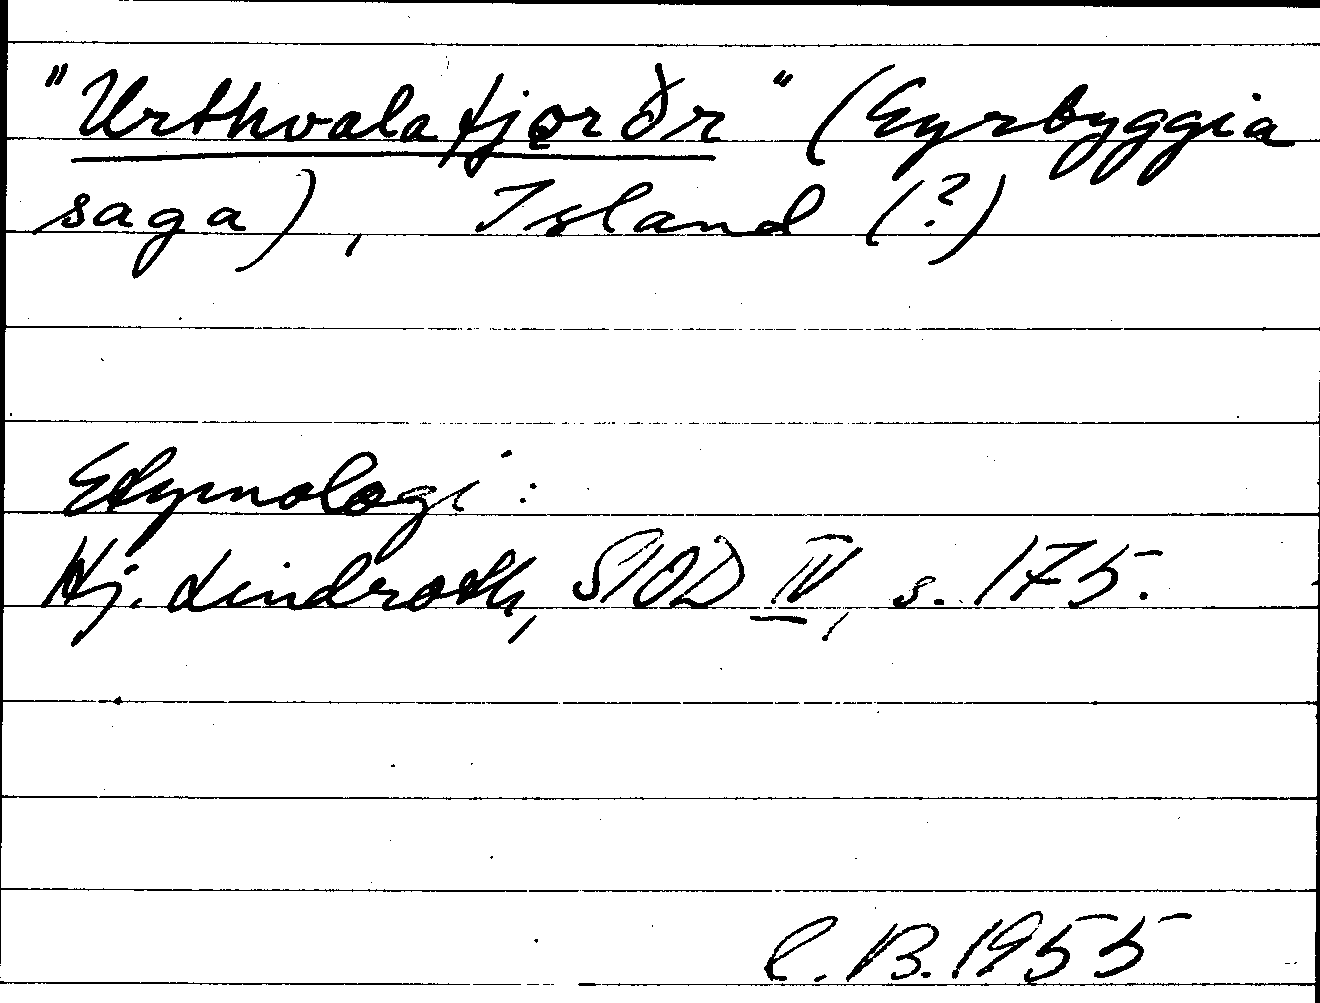 "Urthvalafjǫrðr" (Eyrbyggia
saga), Island (?)
Etymologi:
Hj. Lindroth, SIOD IV, s. 175.
C.B. 1955